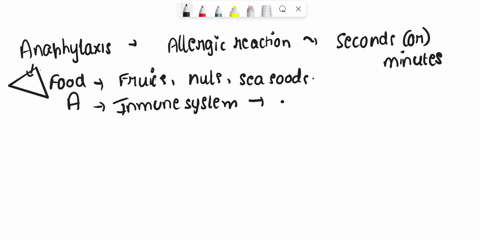 Anaphylaxis → Allergic reaction ~ Seconds (or) minutes
Food → Fruits, nuts, sea foods.
A → Immune system → .